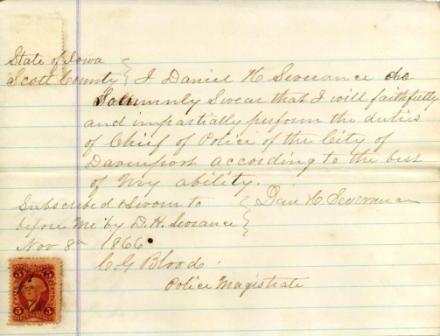 State of Iowa
Scott County } I Daniel H Severance do
Solumnly Swear that I will faithfully
and impartially perform the duties
of Chief of Police of the City of
Davenport according to the best
of my ability.
Subscribed & Sworn to { Dan H. Severance
before me by D. H. Severance
Nov 8th 1866
C G Blood
Police Magistrate
5 5